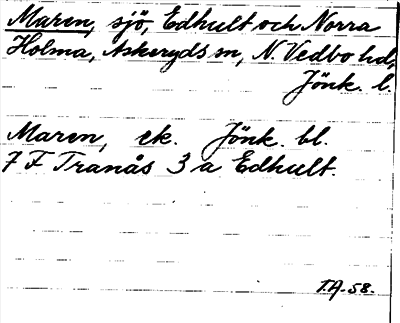 Maren, sjö, Edhult och Norra
Holma, Askeryds sn, N. Vedbo hd,
Jönk. l.
Maren, ek. Jönk. bl.
7 F Tranås 3 a Edhult.
T.A. 58.